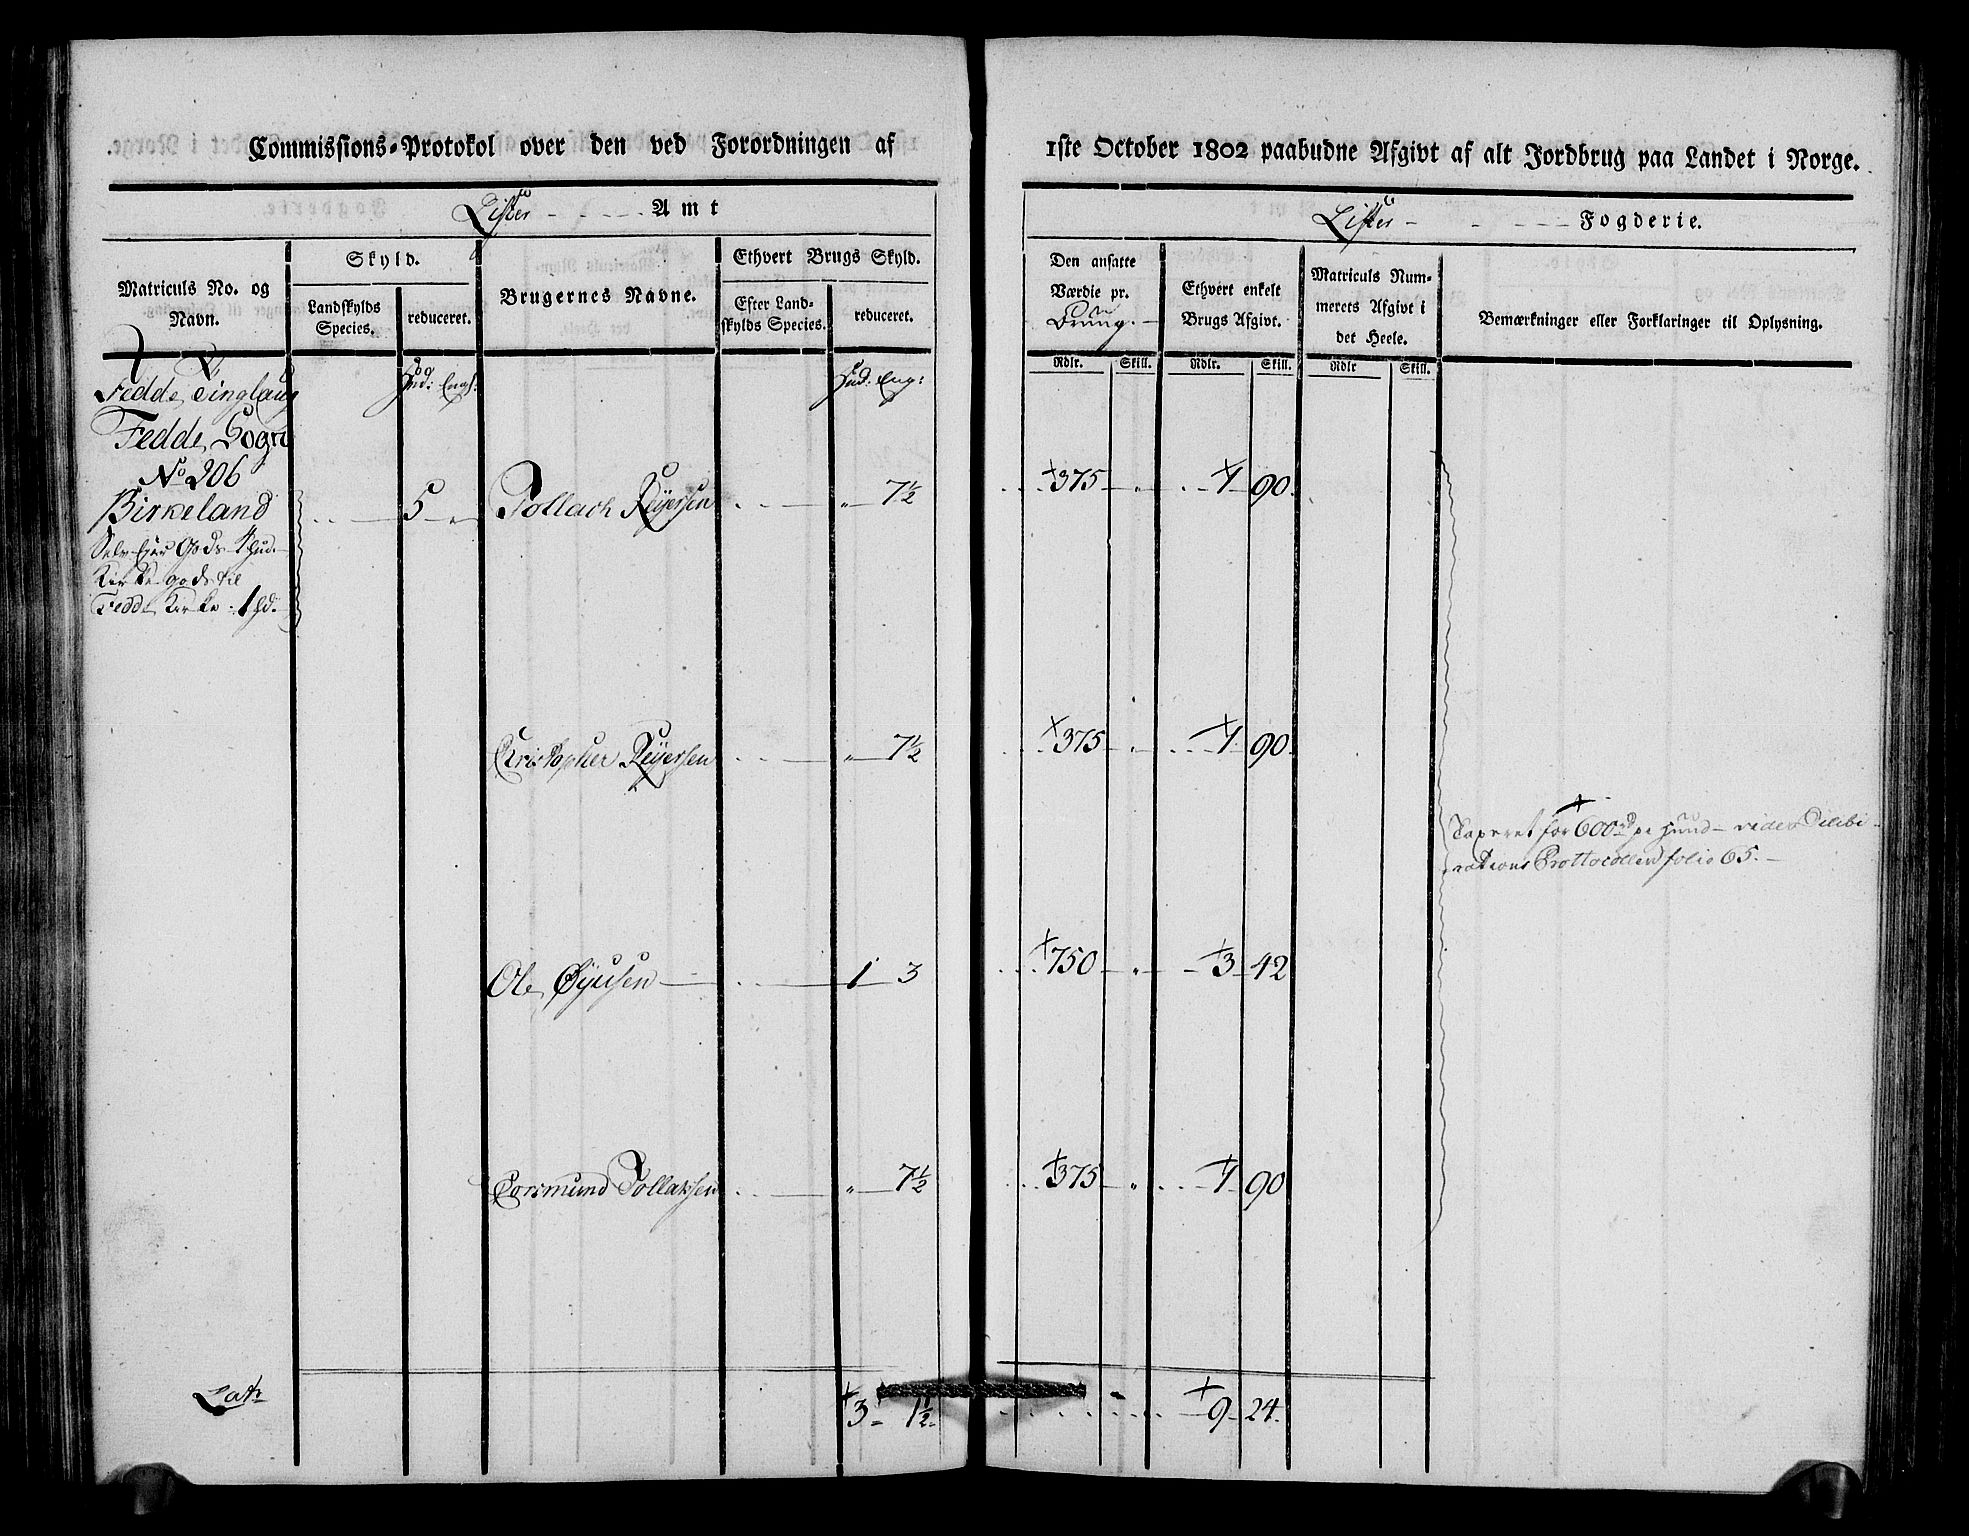 Commissions-Protokol over den ved Forordningen af
1ste October 1802 paabudne Afgivt af alt Jordbrug paa Landet i Norge.
Lister Amt
Lister Fogderie.
Matriculs No. og Navn.
Skyld.
Landskylds Species.
reduceret.
Brugernes Navne.
Ethvert Brugs Skyld.
Efter Landskylds Species.
reduceret.
Den ansatte Værdie pr.
Brug.
Ethvert enkelt Brugs Afgivt.
Matriculs Nummerets Afgivt i det Heele.
Bemærkninger eller Forklaringer til Oplysning.
Rdlr. Skill. Rdlr. Skill. Rdlr Skill.
Fedde Tinglaug Hud: Eng: Hud: Eng:
Fedde Sogn
No 206
Birkeland 5 " Tollach Reyersen " 7½ 375 " 1 90
Selv Eier Gods 4 Hud.
Kirke gods til
Fedde Kirke 1 Hd.
Christopher Reyersen " 7½ 375 " 1 90
Taxeret for 600 rd pr Huud vides Delibe-
rations Prottocollen folio 65.
Ole 1 3 750 " 3 42
Tormund Tollaksen " 7½ 375 " 1 90
Lat 3 1½ 9 24